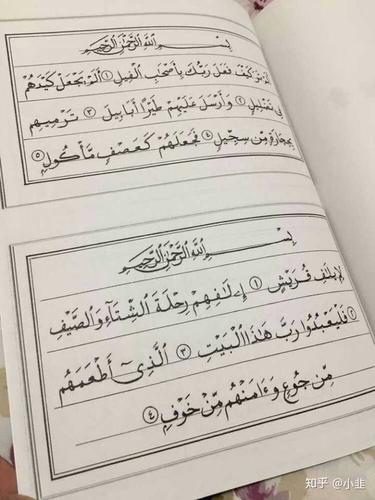 بِسْمِ ٱللَّهِ ٱلرَّحْمَٰنِ ٱلرَّحِيمِ
أَلَمْ تَرَ كَيْفَ فَعَلَ رَبُّكَ بِأَصْحَٰبِ ٱلْفِيلِ ١ أَلَمْ يَجْعَلْ كَيْدَهُمْ
فِى تَضْلِيلٍ ٢ وَأَرْسَلَ عَلَيْهِمْ طَيْرًا أَبَابِيلَ ٣ تَرْمِيهِم
بِحِجَارَةٍ مِّن سِجِّيلٍ ٤ فَجَعَلَهُمْ كَعَصْفٍ مَّأْكُولٍ ٥
بِسْمِ ٱللَّهِ ٱلرَّحْمَٰنِ ٱلرَّحِيمِ
لِإِيلَٰفِ قُرَيْشٍ ١ إِۦلَٰفِهِمْ رِحْلَةَ ٱلشِّتَآءِ وَٱلصَّيْفِ
٢ فَلْيَعْبُدُوا۟ رَبَّ هَٰذَا ٱلْبَيْتِ ٣ ٱلَّذِىٓ أَطْعَمَهُم
مِّن جُوعٍ وَءَامَنَهُم مِّنْ خَوْفٍۭ ٤
知乎 @小韭